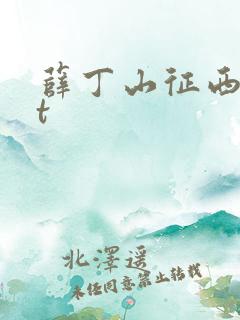 薛丁山征西
t
北澤遥
未经同意禁止转载